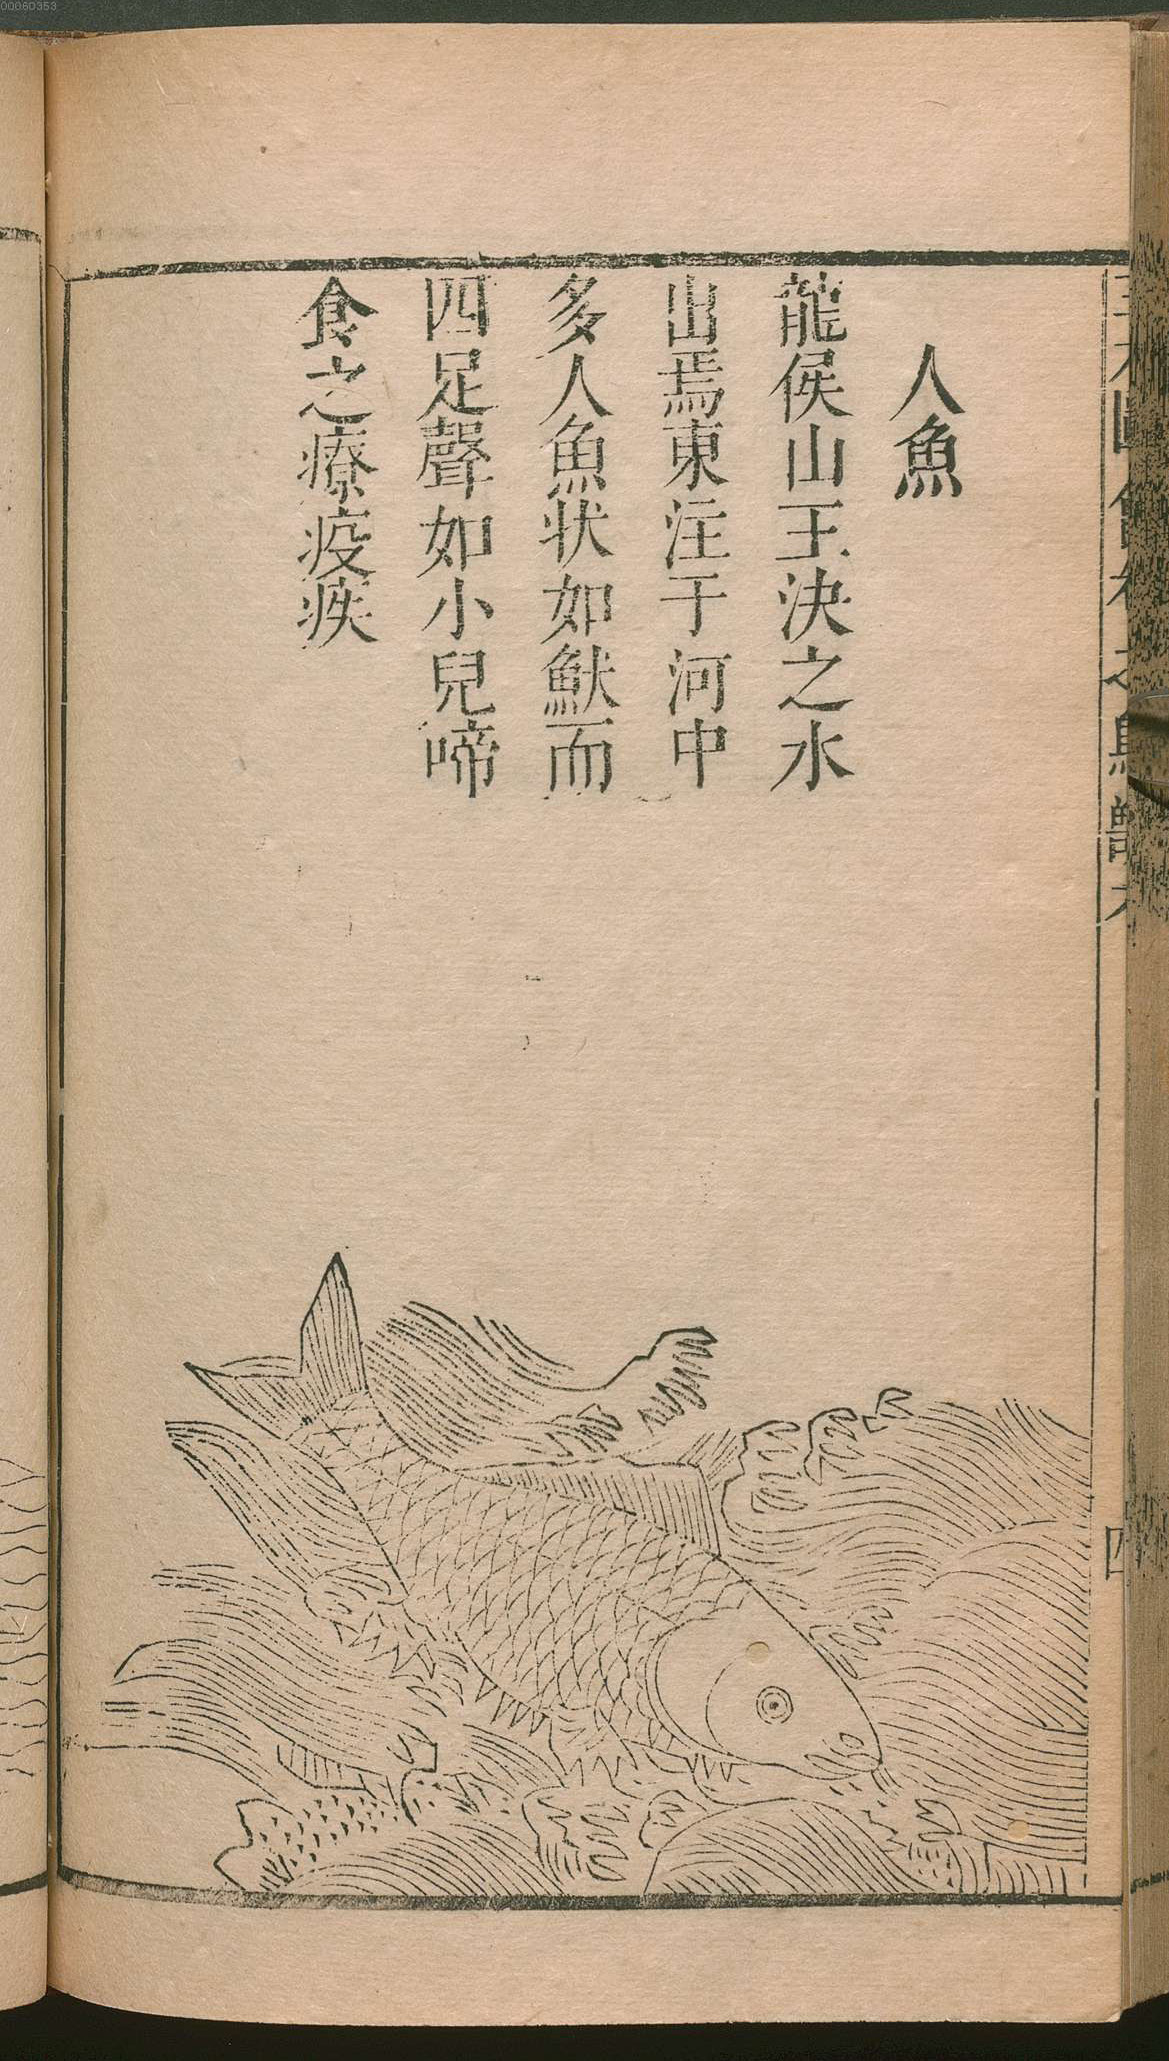 人魚
龍侯山王決之水
出焉東注于河中
多人魚狀如䱾而
四足聲如小兒啼
食之療疫疾
四
00060353